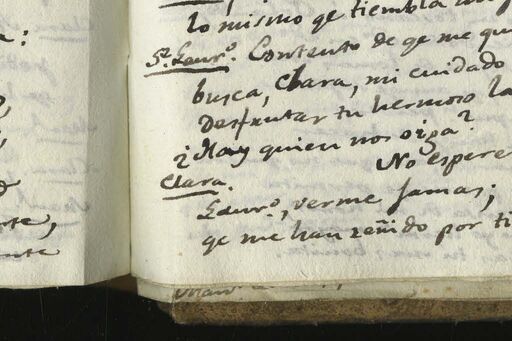 a:
te,
ente
lo mismo qe tiembla
Sr. Laur.o. Contento de qe me qu
busca, Clara, mi cuidado
Desfrutar tu hermoso la
¿Hay quien nos oiga?
No espere
Clara.
Laur.o, verme jamas;
qe me han reñido por ti